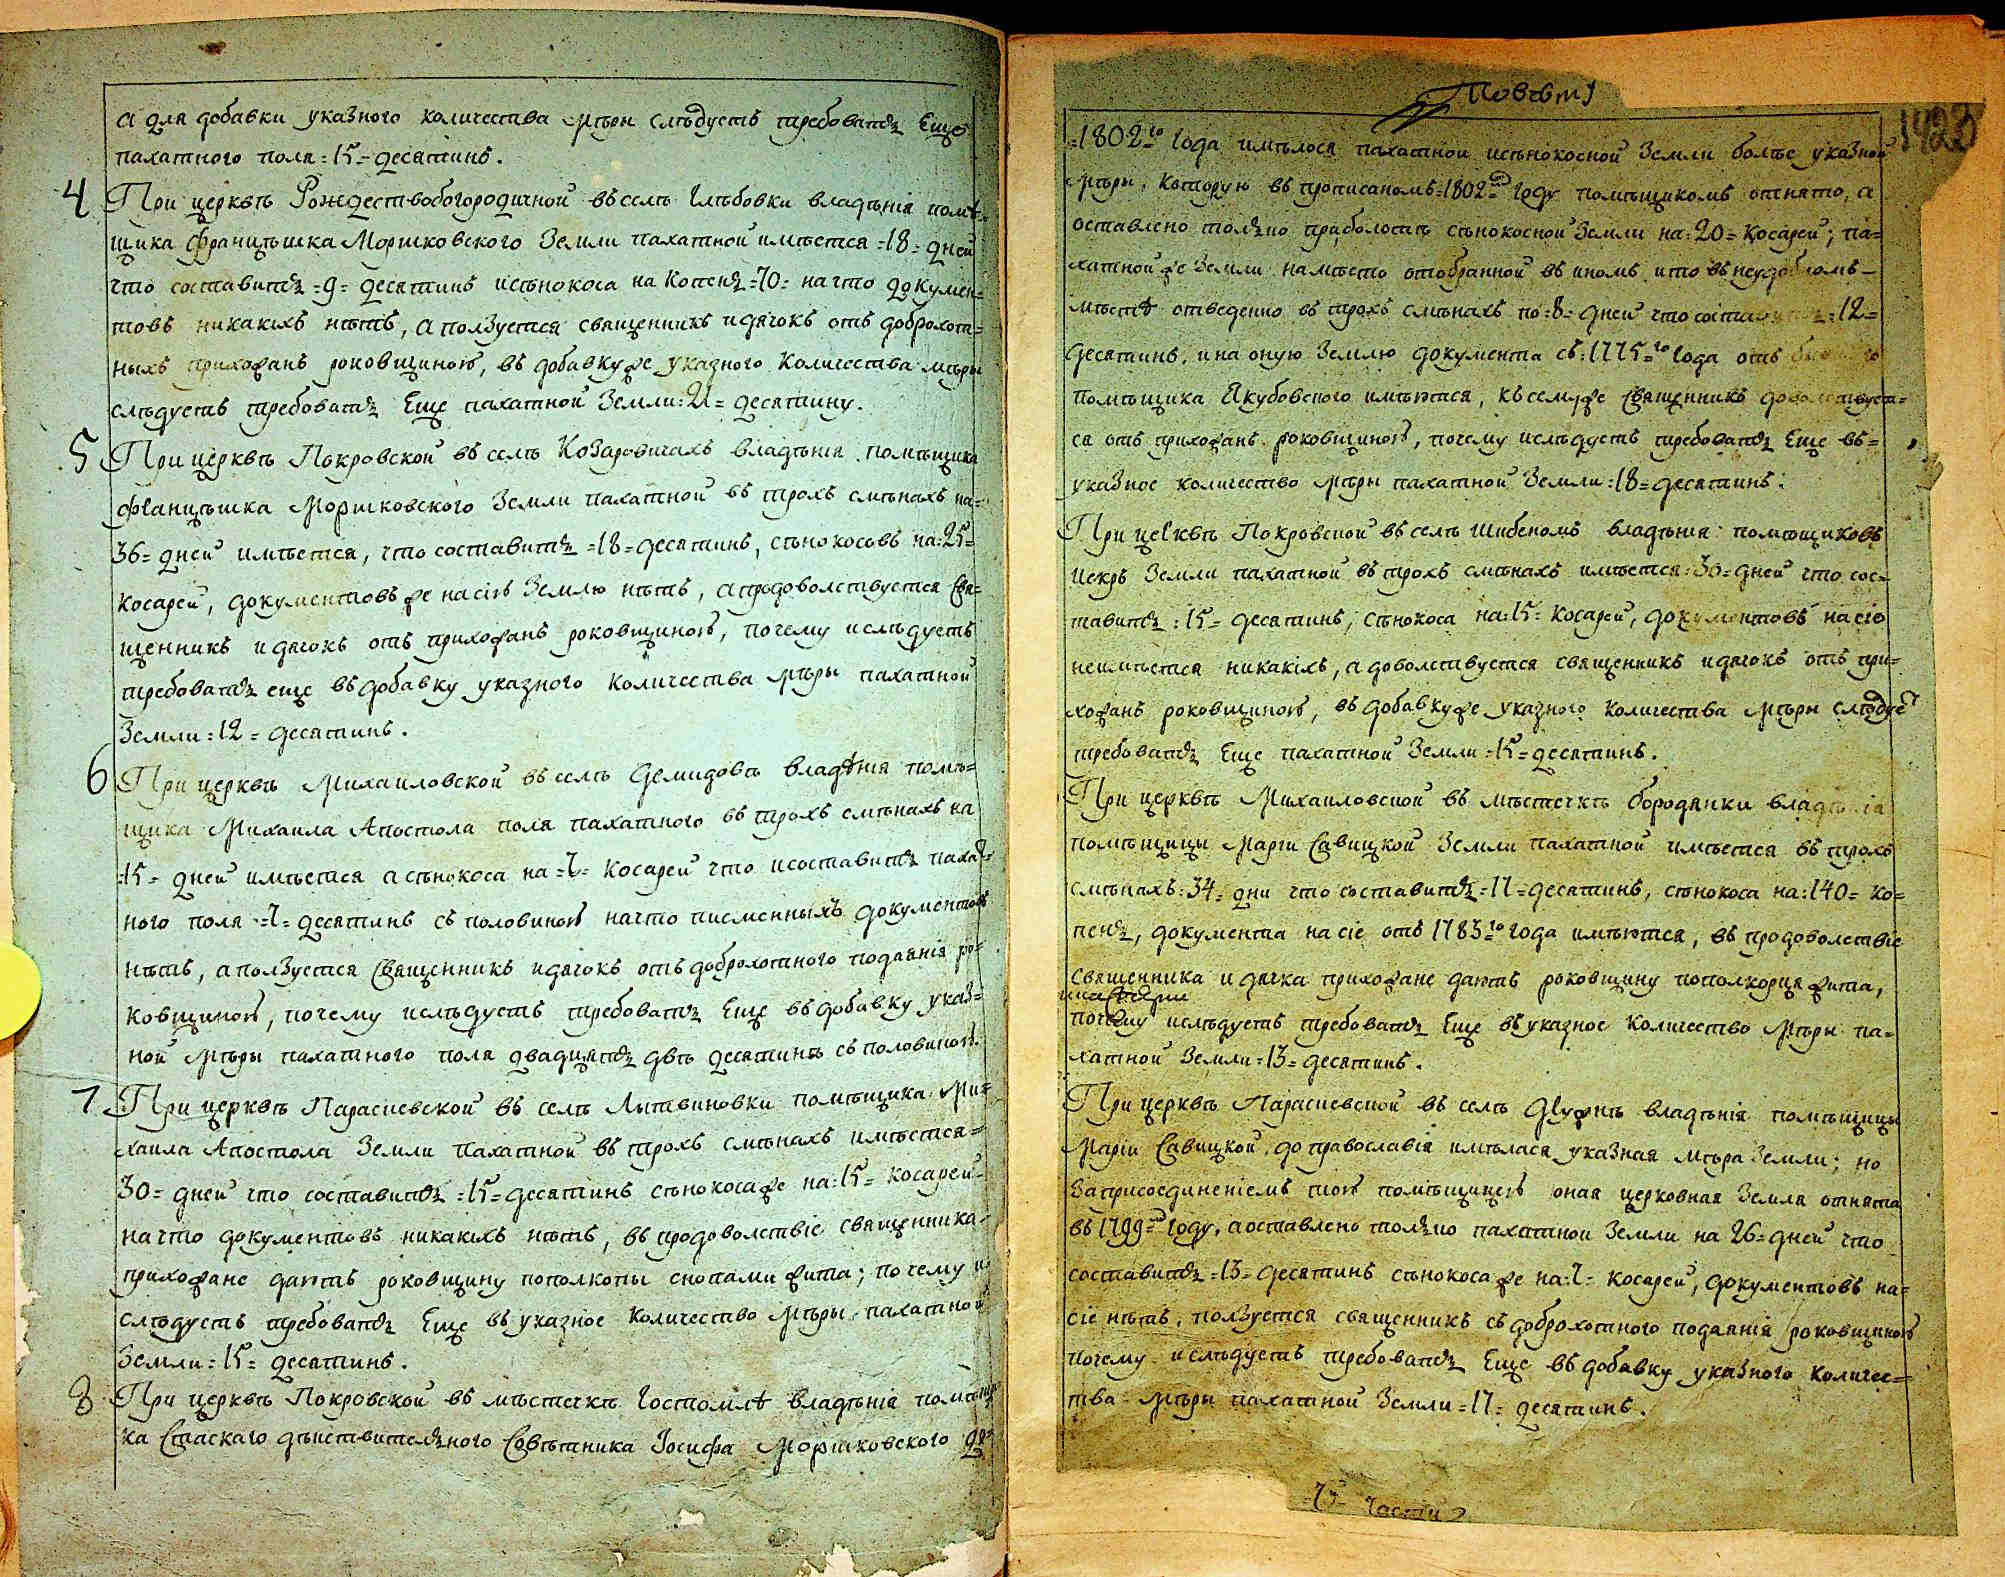 а для добавки указного количества мѣры слѣдуетъ требовать Еще
пахатного поля =15= десятинъ.
4 При церквѣ Рождествобогородичной въ селѣ Глѣбовки владѣнія помѣ=
щика Францѣшка Моршковского Земли пахатной имѣется =18= дней
что составитъ =9= десятинъ исѣнокоса на копенъ =70= на что докумен=
товъ никакихъ нѣтъ, а ползуется священникъ идячокъ отъ доброхот=
ныхъ прихожанъ роковщиною, въ добавку же указного количества мѣры
слѣдуетъ требовать Еще пахатной Земли =21= десятину.
5 При церквѣ Покровской въ селѣ Козаровичахъ владѣнія помѣщика
Францѣшка Моршковского Земли пахатной въ трохъ смѣнахъ на=
36= дней имѣется, что составитъ =18= десятинъ, сѣнокосовъ на =25=
косарей, документовъ же на сію Землю нѣтъ, а продоволствуется свя=
щенникъ идячокъ отъ прихожанъ роковщиною, почему ислѣдуетъ
требовать еще въ добавку указного количества мѣры пахатной
Земли =12= десятинъ.
6 При церквѣ Михаиловской въ селѣ Демидовѣ владѣнія помѣ=
щика Михаила Апостола поля пахатного въ трохъ смѣнахъ на
=15= дней имѣется а сѣнокоса на =7= косарей что исоставитъ пахат=
ного поля =7= десятинъ съ половиною начто писменныхъ документовъ
нѣтъ, а ползуется Священникъ идячокъ отъ доброхотного подаянія ро=
ковщиною, почему ислѣдуетъ требовать Еще въ добавку указ=
ной мѣры пахатного поля двадцять двѣ десятинѣ съ половиною.
7 При церквѣ Параскевской въ селѣ Лытвиновки помѣщика Ми=
хаила Апостола Земли пахатной въ трохъ смѣнахъ имѣется=
30= дней что составитъ =15= десятинъ сѣнокоса же на =15= косарей
на что документовъ никакихъ нѣтъ, въ продоволствіе священника
прихожане даютъ роковщину пополкопы снопами жита; почему и
слѣдуетъ требовать Еще въ указное количество мѣры пахатной
Земли =15= десятинъ.
8 При церквѣ Покровской въ мѣстечкѣ Гостомлѣ владѣнія помѣщи
ка Статскаго дѣйствителного Совѣтника Іосифа Моршковского до=
Повѣту
1423
=1802=го Года имѣлося пахатной исѣнокосной Земли болѣе указной
мѣры, которую въ прописаномъ =1802=мъ году помѣщикомъ отнято, а
оставлено толко приболотѣ сѣнокосной Земли на =20= косарей; па=
хатной же Земли намѣсто отобранной въ иномъ ито въ неудобномъ=
мѣстѣ отведенно въ трохъ смѣнахъ по =8= дней что составитъ =12=
десятинъ, и на оную Землю документа съ =1775=го Года отъ
помѣщика Якубовского имѣется, къ сему же Священникъ доволствует=
ся отъ прихожанъ роковщиною, почему ислѣдуетъ требовать Еще въ=
указное количество мѣры пахатной Земли =18= десятинъ.
При церквѣ Покровской въ селѣ Шибеномъ владѣнія помѣщиковъ
Искръ Земли пахатной въ трохъ смѣнахъ имѣется =30= дней что сос=
тавитъ =15= десятинъ, сѣнокоса на =15= косарей, документовъ на сіе
неимѣется никакіхъ, а доволствуется священникъ идячокъ отъ при=
хожанъ роковщиною, въ добавку же указного количества мѣры слѣдуетъ
требовать Еще пахатной Земли =15= десятинъ.
При церквѣ Михаиловской въ мѣстечкѣ Бородянки владѣнія
помѣщицы Маріи Савицкой Земли пахатной имѣется въ трохъ
смѣнахъ =34= дни что составитъ =17= десятинъ, сѣнокоса на =140= ко=
пенъ, документа на сіе отъ 1783=го Года имѣются, въ продоволствіе
священника и дячка прихожане даютъ роковщину пополкорця жита,
почему ислѣдуетъ требовать Еще въ указное количество мѣры па=
хатной Земли =13= десятинъ.
При церквѣ Параскевской въ селѣ Дружнѣ владѣнія помѣщицы
Маріи Савицкой до православія имѣлася указная мѣра Земли; но
Заприсоединеніемъ тою помѣщицею оная церковная Земля отнята
въ 1799=мъ году, а оставлено толко пахатной Земли на 26= дней что
составитъ =13= десятинъ сѣнокоса же на =7= косарей, документовъ на=
сіе нѣтъ, ползуется священникъ съ доброхотного подаянія роковщиною
почему ислѣдуетъ требовать Еще въ добавку указного количес=
тва мѣры пахатной Земли =17= десятинъ.
части